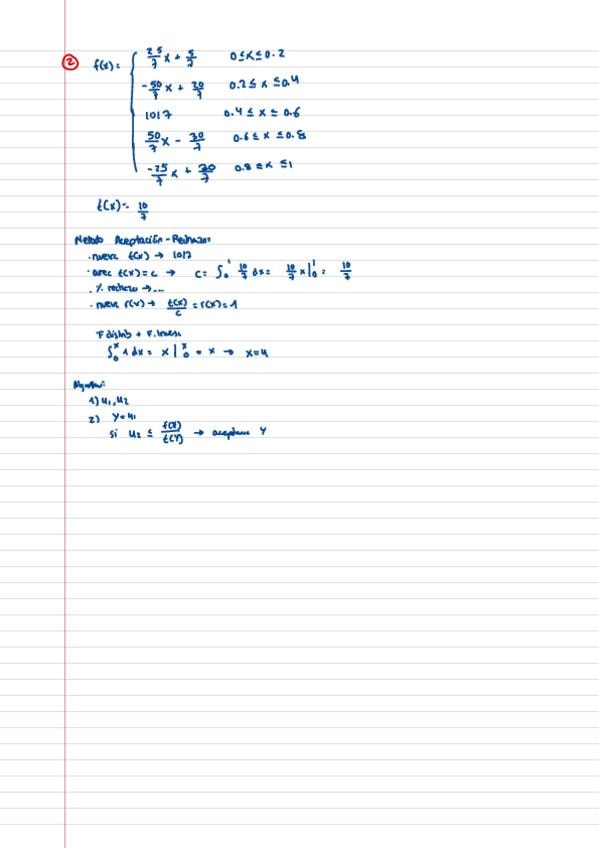 2 f(x): 25/7 x + 5/7 0≤x≤0.2
-50/7 x + 20/7 0.2≤x≤0.4
1017 0.4≤x≤0.6
50/7 x - 20/7 0.6≤x≤0.8
-25/7 x + 20/7 0.8≤x≤1
t(x)= 10/7
Metodo Aceptación-Rechazo:
· nueva t(x) → 1017
· area t(x)=c → c= ∫₀¹ 10/7 dx= 10/7 x|₀¹= 10/7
· % rechazo →...
· nueva r(x) → t(x)/c = r(x)=1
F distrib + F. Inversa
∫₀ˣ 1 dx = x|₀ˣ = x → x=u
Algoritmo:
1) u₁,u₂
2) y=u₁
si u₂ ≤ f(Y)/t(Y) → aceptamos Y